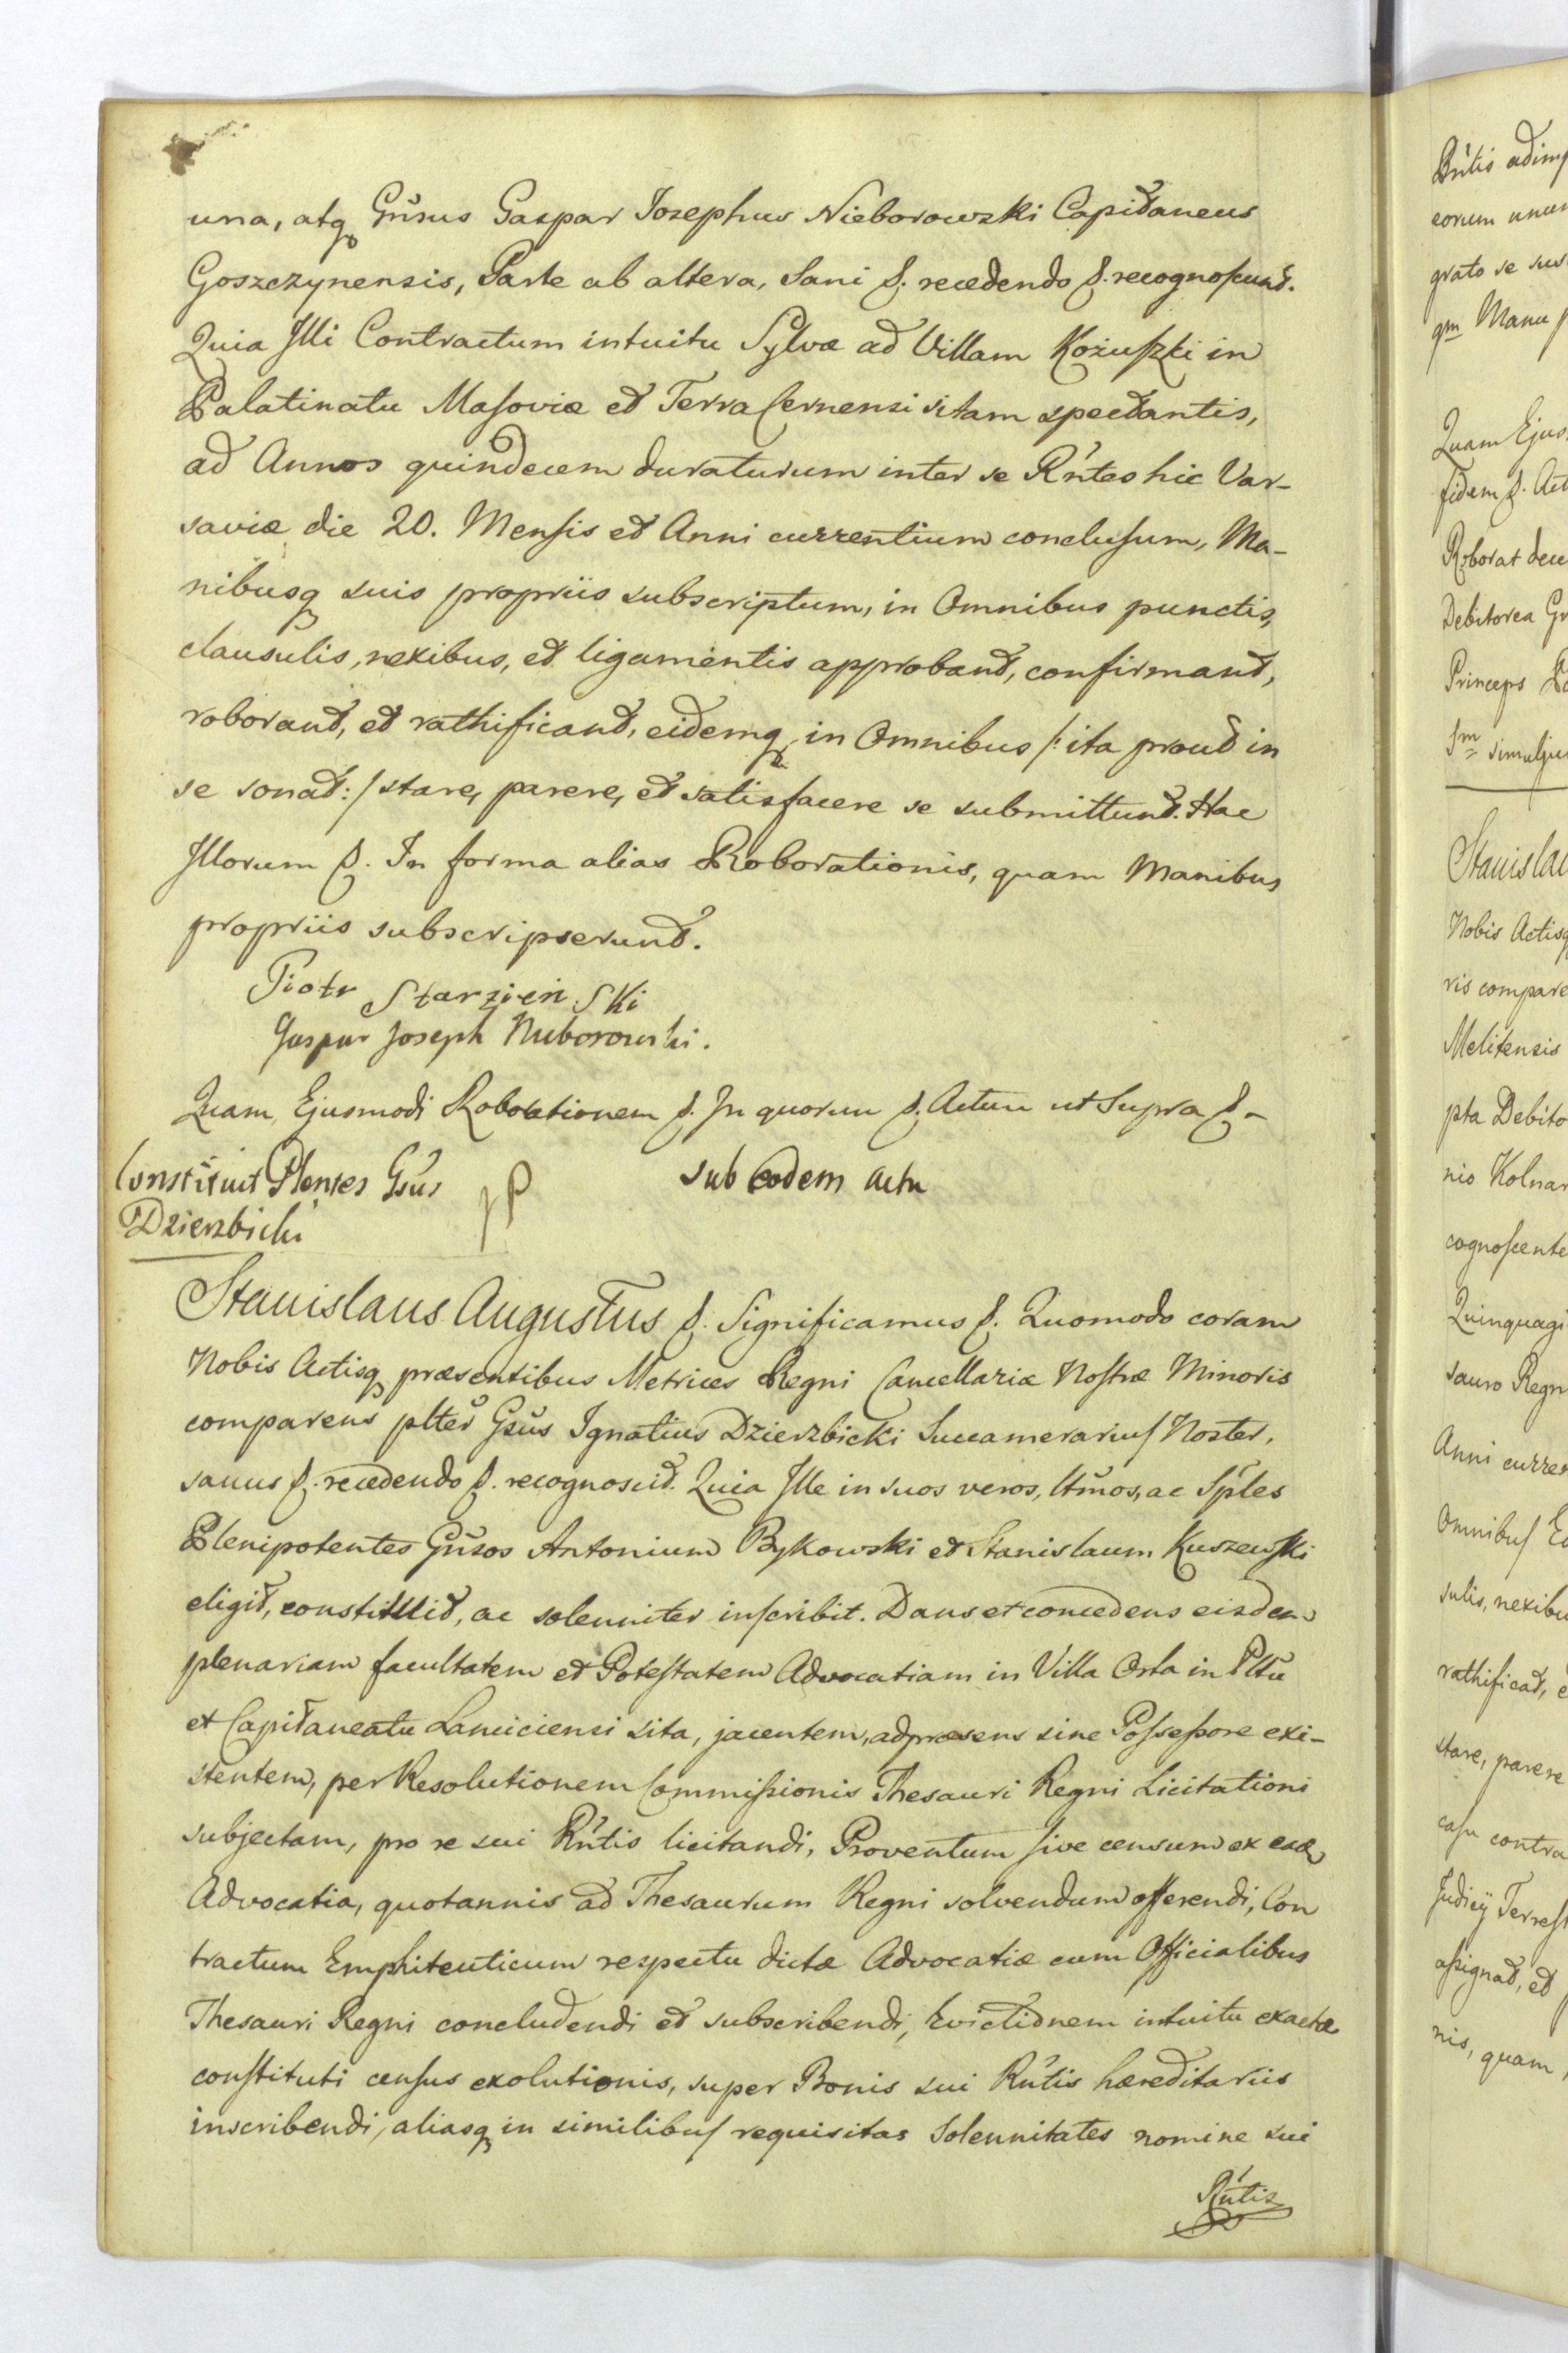 una, atq Gnsus Gaspar Josephus Nieborowski Capitaneus
Goszczynensis, Parte ab altera, Sani &. recedendo &. recognoscunt.
Quia Illi Contractum intuitu Sylvæ ad Villam Kożuszki in
Palatinatu Masoviæ et Terra Cernensi sitam spectantis,
ad Annos quindecem duraturum inter se Rntes hic Var-
saviæ die 20. Mensis et Anni currentium conclusum, Ma-
nibusq suis propriis subscriptum, in Omnibus punctis,
clausulis, nexibus, et ligamentis approbant, confirmant,
roborant, et rathificant, eidemq in Omnibus /: ita prout in
se sonat: / stare, parere, et satisfacere se submittunt. Hac
Illorum &. In forma alias Roborationis, quam Manibus
propriis subscripserunt.
Piotr Starzieński
Gaspar Joseph Nieborowski.
Quam Ejusmodi Roborationem &. In quorum &. Actum ut Supra &-
Constituit Plentes Gsus
Dzierzbicki
sub eodem actu
Stanislaus Augustus &. Significamus &. Quomodo coram
Nobis Actisq præsentibus Metrices Regni Cancellariæ Nostræ Minoris
comparens plter Gsus Ignatius Dzierzbicki Succamerarius Noster,
sanus &. recedendo &. recognoscit. Quia Ille in suos veros, ltmos, ac Sples
Plenipotentes Gnsos Antonium Bykowski et Stanislaum Kuszewski
eligit, constituit, ac solenniter inscribit. Dans et concedens eisdem
plenariam facultatem et Potestatem Advocatiam in Villa Orla in Pltu
et Capitaneatu Lanciciensi sita, jacentem, adpræsens sine Possessore exi-
stentem, per Resolutionem Commissionis Thesauri Regni Licitationi
subjectam, pro re sui Rntis licitandi, Proventum sive censum ex ead
Advocatia, quotannis ad Thesaurum Regni solvendum offerendi, Con
tractum Emphiteuticum respectu dictæ Advocatiæ cum Officialibus
Thesauri Regni concludendi et subscribendi, Evictionem intuitu exactæ
constituti census exolutionis, super Bonis sui Rntis hæreditariis
inscribendi, aliasq in similibus requisitas Solennitates nomine sui
Rntis